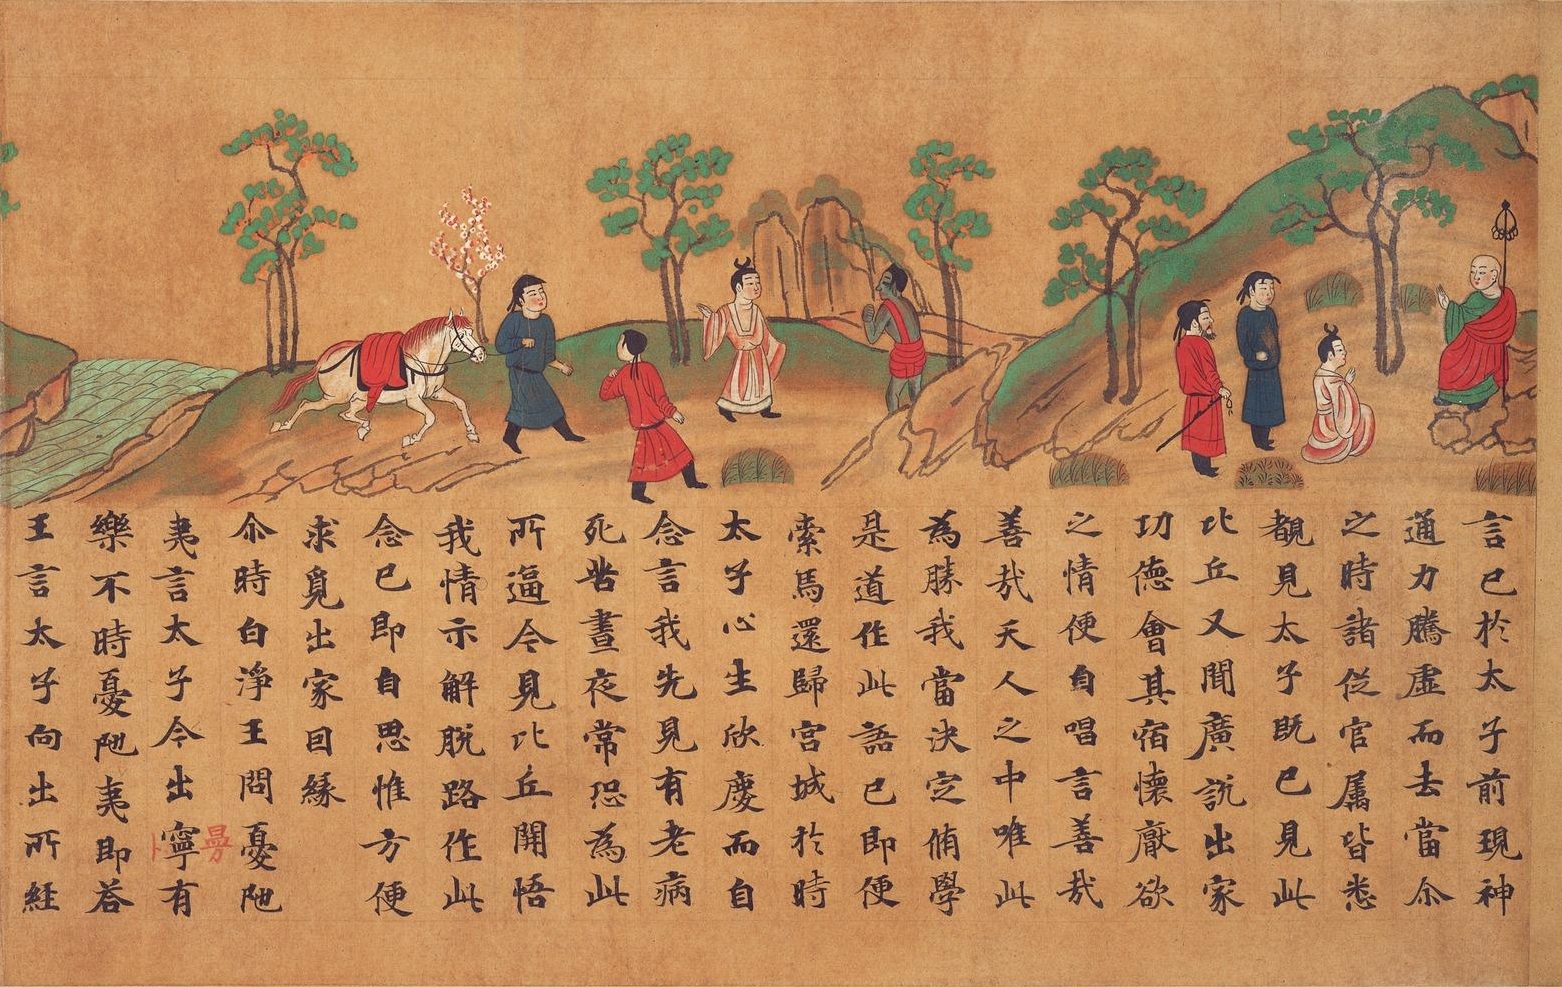 言已於太子前現神
通力騰虛而去當尒
之時諸從官属皆悉
覩見太子既已見此
比丘又聞廣說出家
功德會其宿懷厭欲
之情便自唱言善哉
善哉天人之中唯此
為勝我當決定脩學
是道作此語已即便
索馬還歸宮城於時
太子心生欣慶而自
念言我先見有老病
死苦晝夜常恐為此
所逼今見比丘開悟
我情示解脫路作此
念已即自思惟方便
求覓出家因緣
尒時白淨王問憂陁
夷言太子今出寧有
樂不時憂陁夷即答
王言太子向出所経